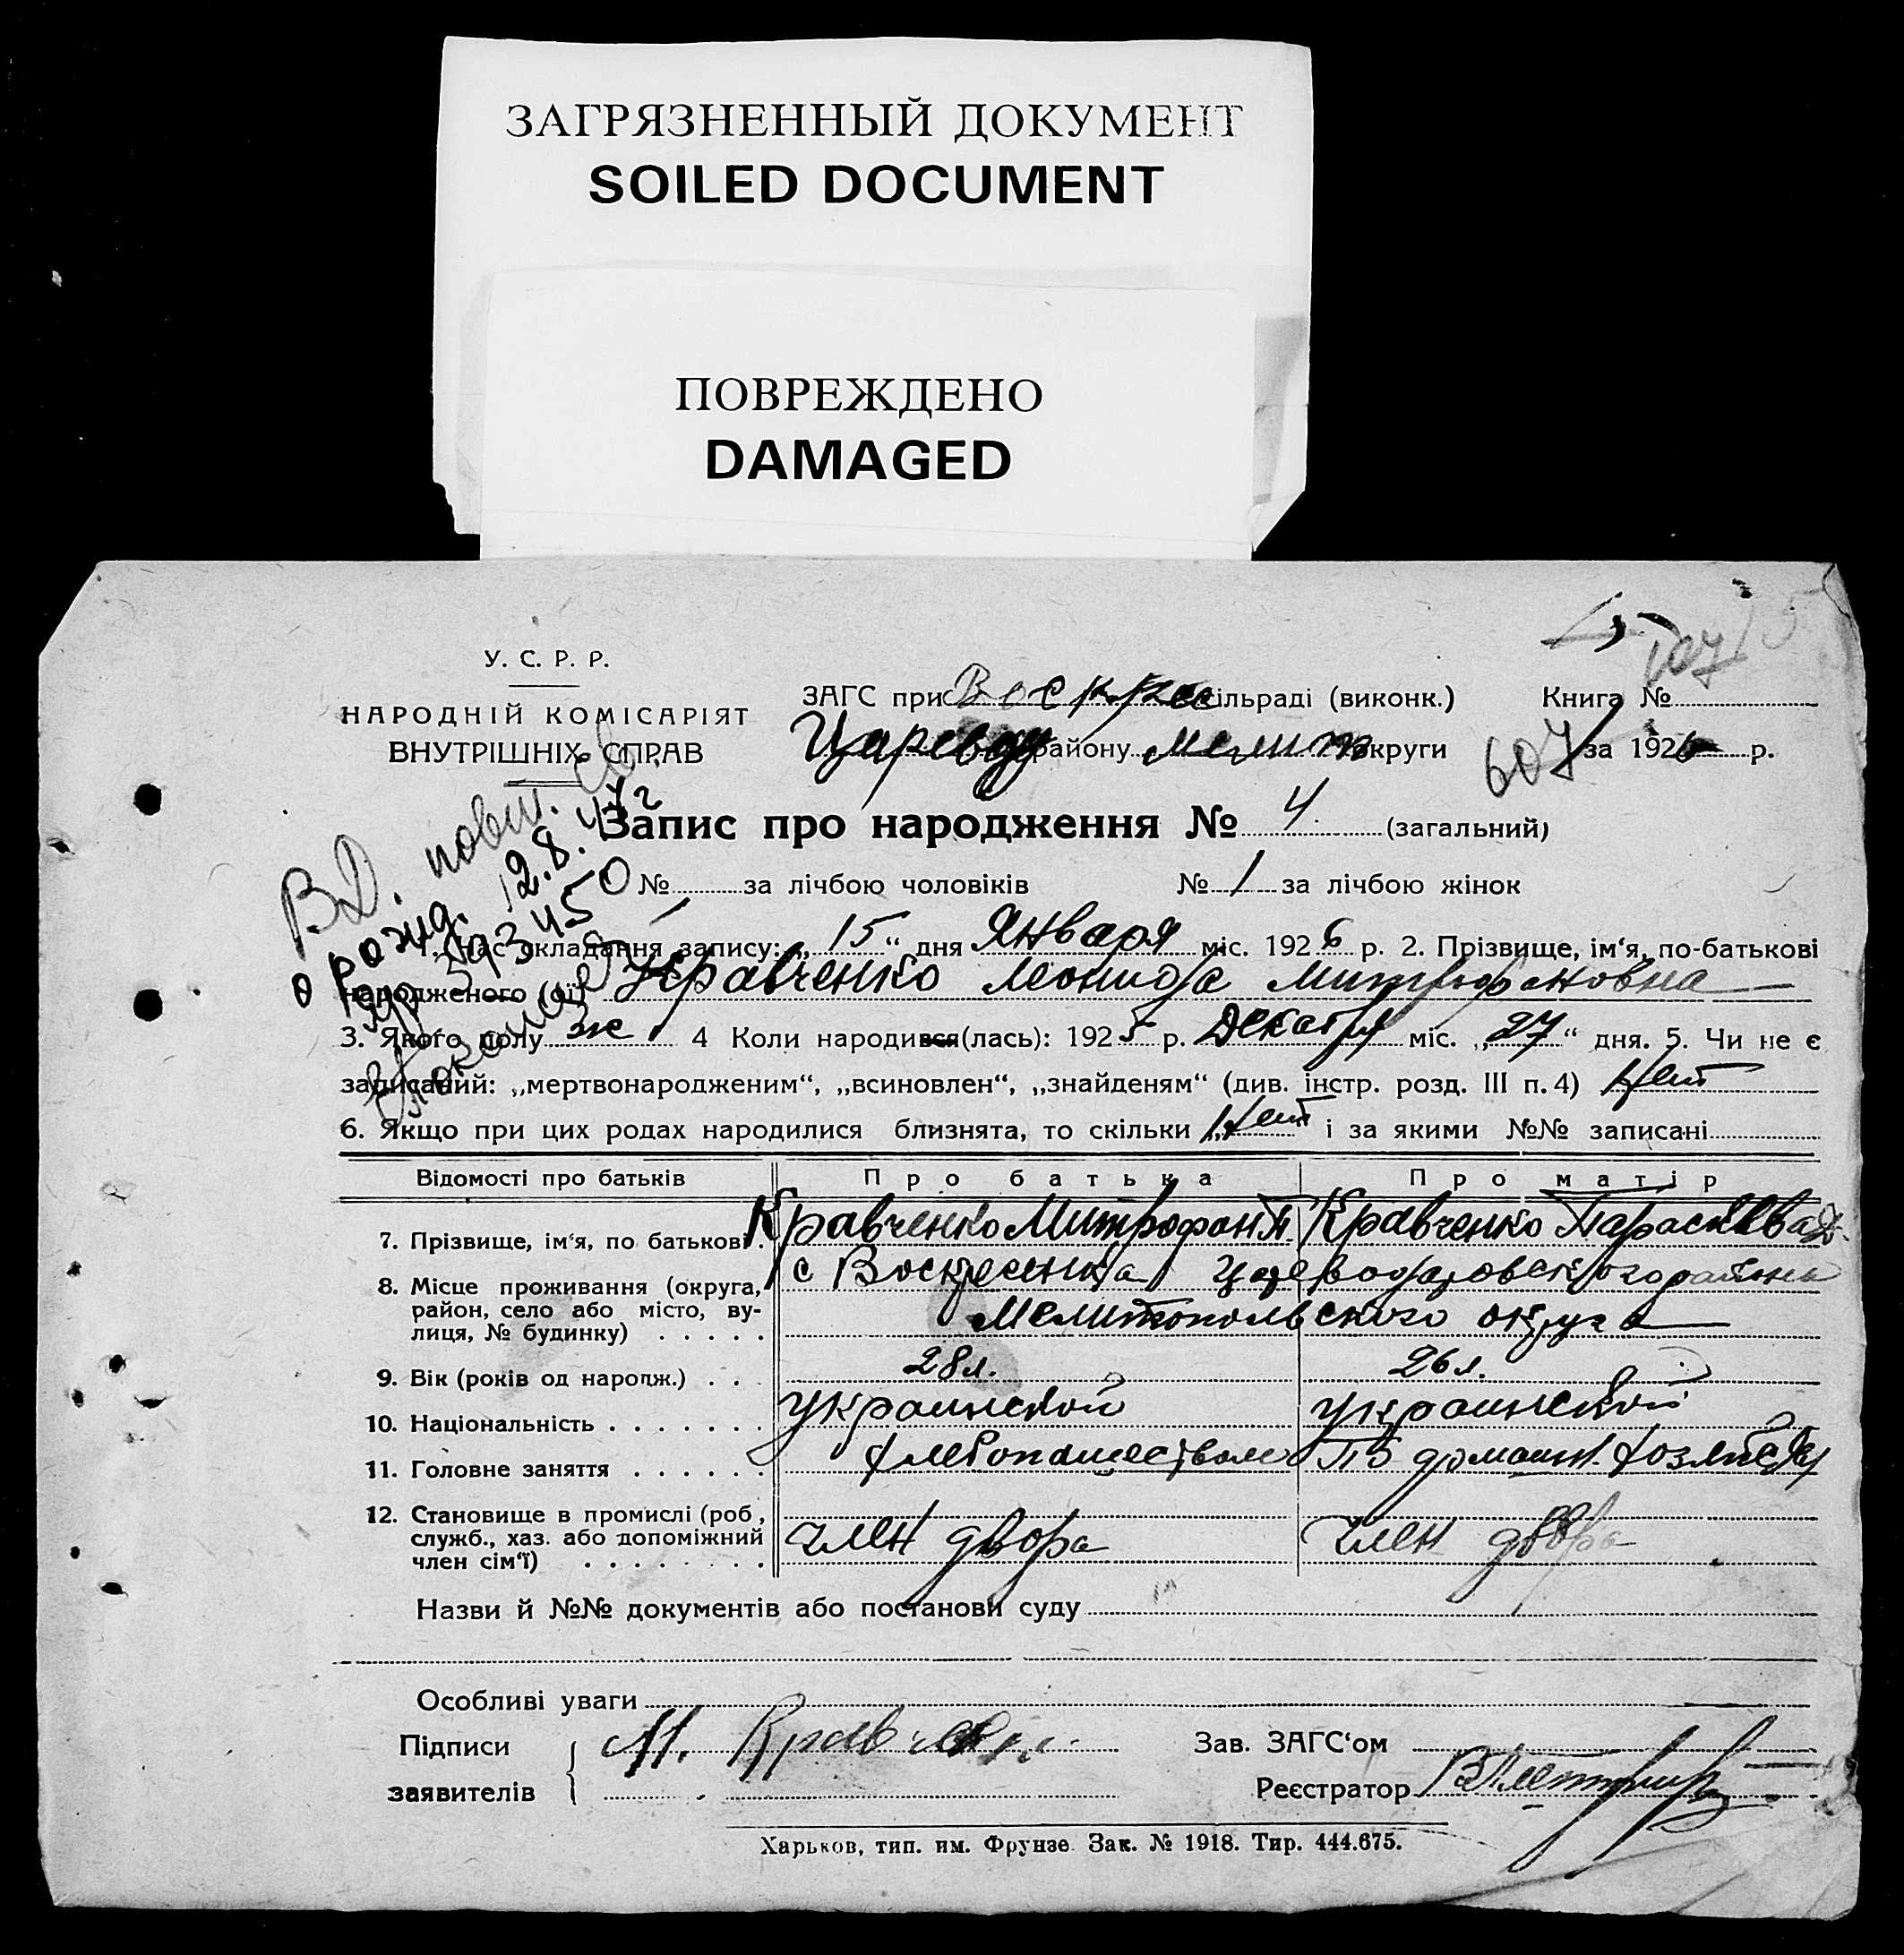 ЗАГРЯЗНЕННЫЙ ДОКУМЕНТ
SOILED DOCUMENT
ПОВРЕЖДЕНО
DAMAGED
У. С. Р. Р.
НАРОДНІЙ КОМІСАРІЯТ
ВНУТРІШНІХ СПРАВ
ЗАГС при Воскрес сільраді (виконк.) Книга №
Царевод району Мелит округи 607 за 1926 р.
Запис про народження № 4. (загальний)
№ за лічбою чоловіків № 1 за лічбою жінок
ВД. повт. св.
о рожд. 12.8.47г
593450
1. Час складання запису: „15“ дня Января міс. 1926 р. 2. Прізвище, ім‘я, по-батькові
народженого (ої) Кравченко Леонида Митрофановна
3. Якого полу ж 4 Коли народився(лась): 1925 р. Декабря міс. „27“ дня. 5. Чи не є
записаний: „мертвонародженим“, „всиновлен“, „знайденям“ (див. інстр. розд. III п. 4) Нет
6. Якщо при цих родах народилися близнята, то скільки „Нет“ і за якими №№ записані
Відомості про батьків Про батька Про матір
7. Прізвище, ім‘я, по батькові Кравченко Митрофан П. Кравченко Парасква
8. Місце проживання (округа, с Воскресенка Цареводаровского района
район, село або місто, ву- Мелитопольского округа
лиця, № будинку)
9. Вік (років од народж.) 28 л. 26 л.
10. Національність Украинской Украинской
11. Головне заняття Хлебопашеством По домашн. хозяйству
12. Становище в промислі (роб.,
служб., хаз. або допоміжний член двора член двора
член сім‘ї)
Назви й №№ документів або постанови суду
Особливі уваги
Підписи М. Кравченко Зав. ЗАГС‘ом
заявителів Реєстратор
Харьков, тип. им. Фрунзе. Зак. № 1918. Тир. 444.675.